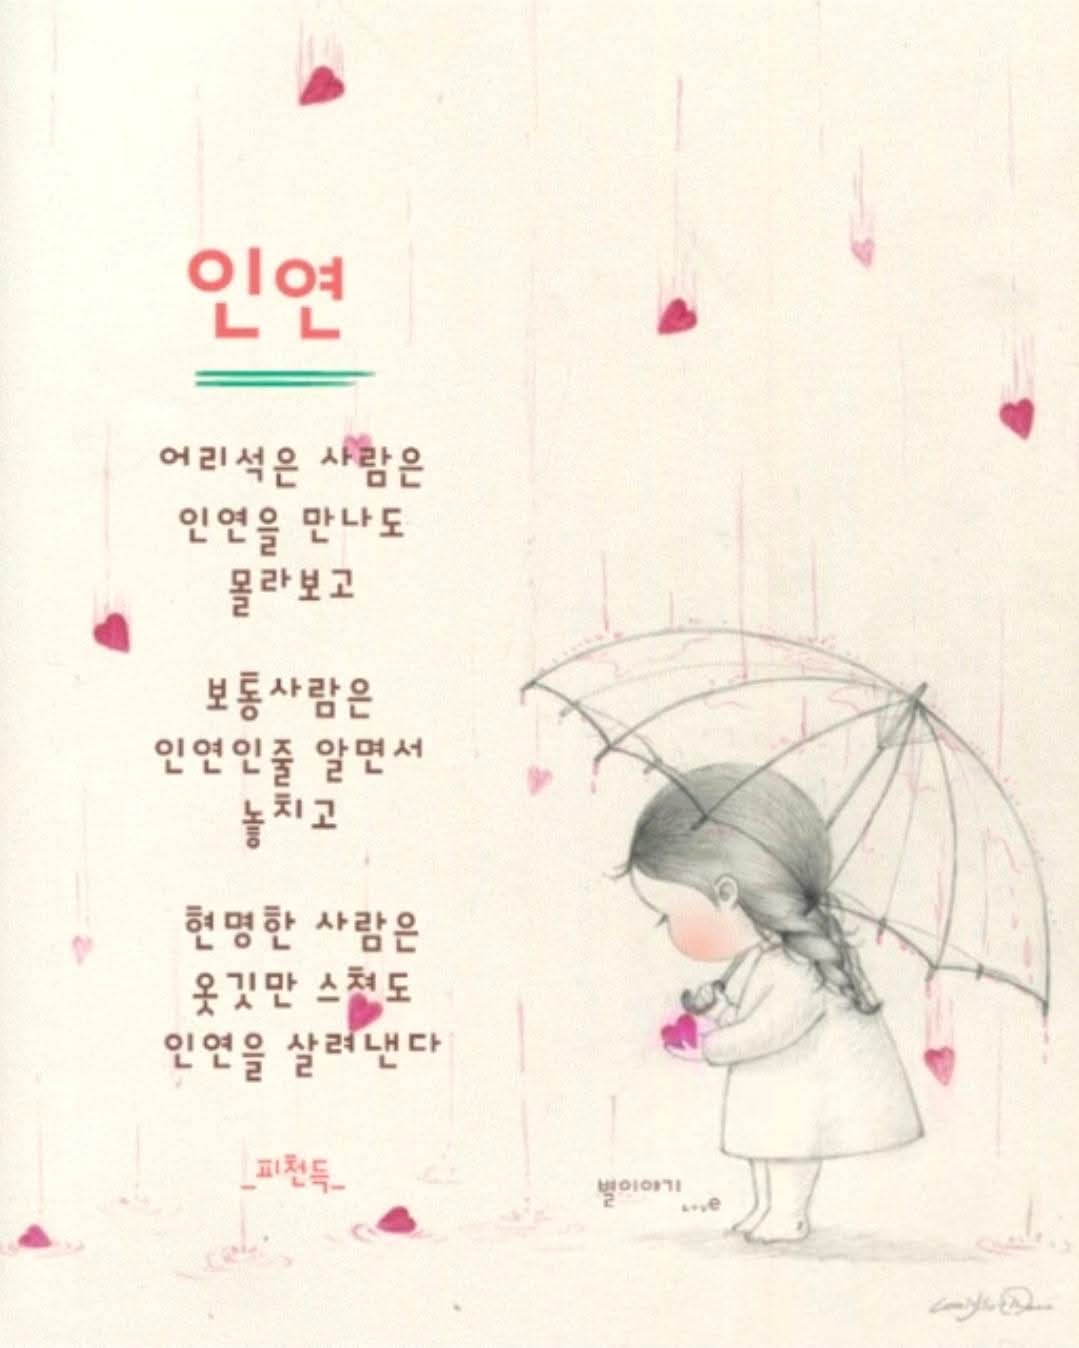 인연
어리석은 사람은
인연을 만나도
몰라보고
보통사람은
인연인줄 알면서
놓치고
현명한 사람은
옷깃만 스쳐도
인연을 살려낸다
_피천득_
별이야기
Love